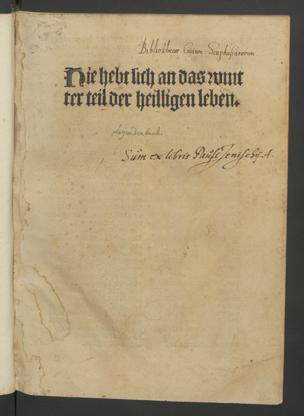 Bibliothecae Civium Scaphusianorum
Hie hebt sich an das wint
ter teil der heilligen leben.
Legendenbuch
Sum ex libris Pauli Jenischÿ. A.